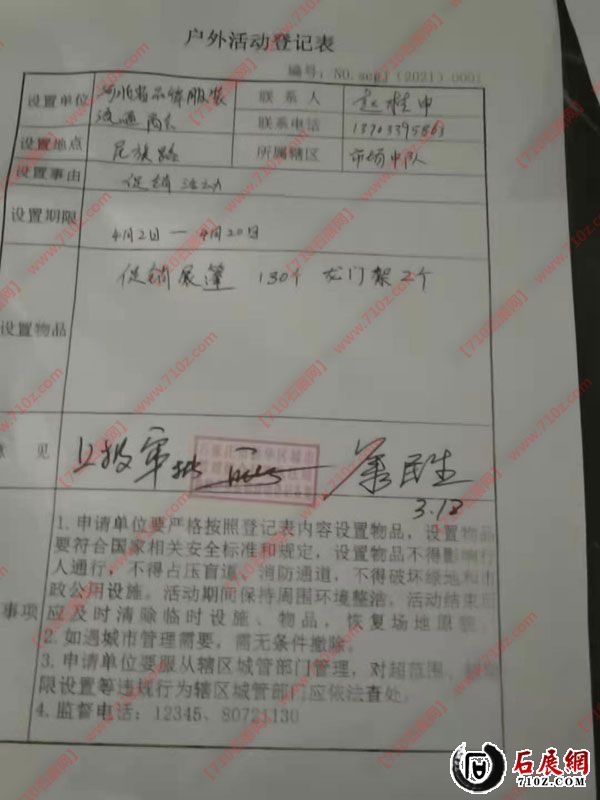 户外活动登记表
编号：NO.scgl（2021）0001
设置单位 河北省品牌服装 联系人
流通商会 联系电话 13703395863
设置地点 民族路 所属辖区 市场中队
设置事由 促销活动
设置期限 4月2日—4月20日
促销展篷 130个 龙门架2个
设置物品
意见 上报审批
3.18
1.申请单位要严格按照登记表内容设置物品，设置物品
要符合国家相关安全标准和规定，设置物品不得影响行
人通行，不得占压盲道、消防通道，不得破坏绿地和市
政公用设施。活动期间保持周围环境整洁，活动结束后
事项 应及时清除临时设施、物品，恢复场地原貌。
2.如遇城市管理需要，需无条件撤除。
3.申请单位要服从辖区城管部门管理，对超范围、
限设置等违规行为辖区城管部门应依法查处。
4.监督电话：12345、80721130
【710石展网】www.710z.com
石展網
710Z.COM